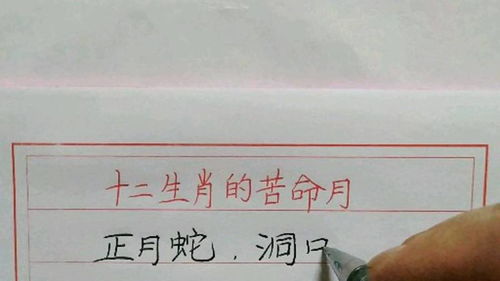 十二生肖的苦命月
正月蛇．洞口